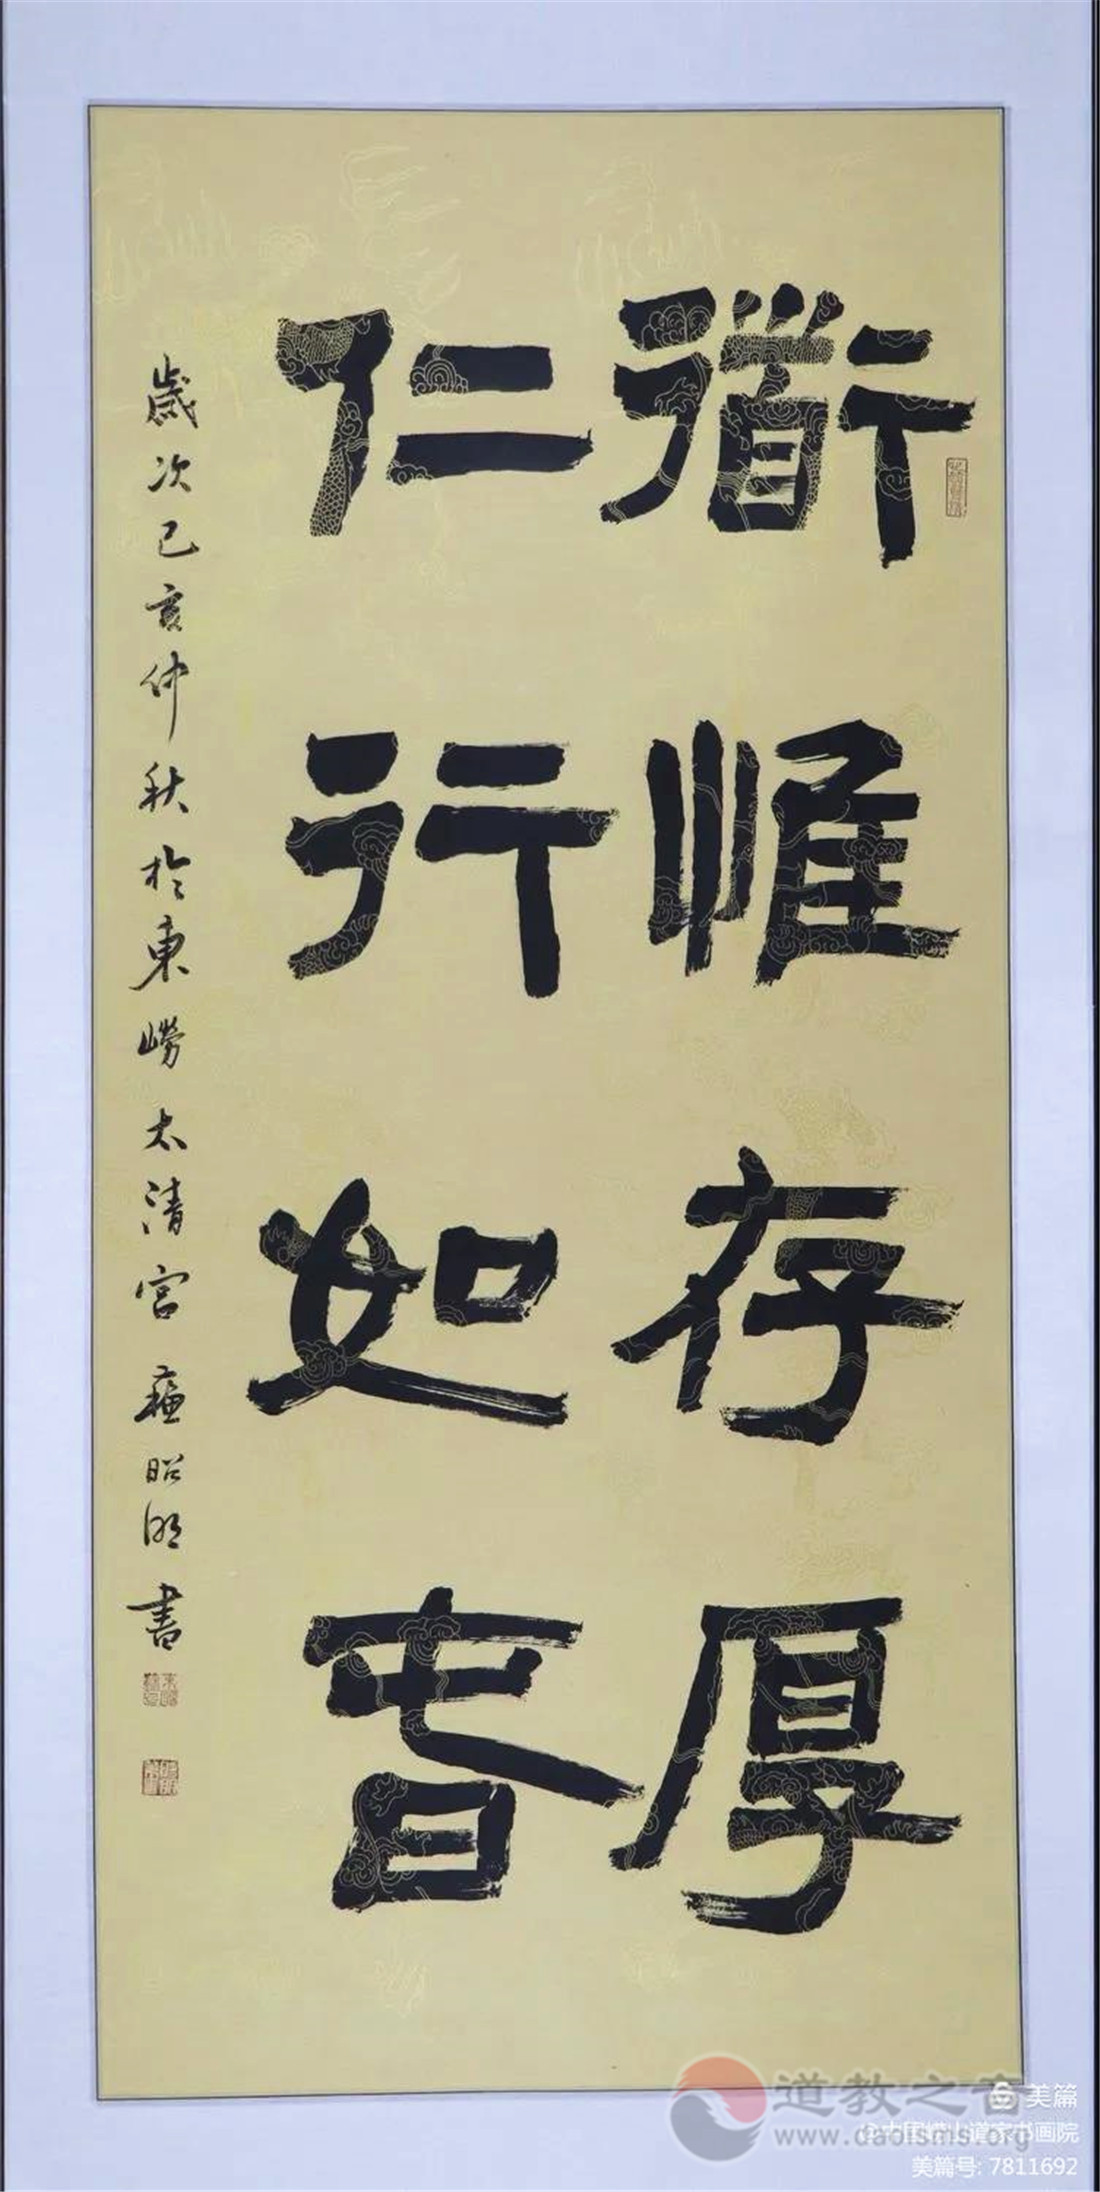 衜惟存厚
仁行如旾
歲次己亥仲秋於東嶗太清宮 蘇昭明書
道教之音
www.daoisms.org
美篇
@中国崂山道家书画院
美篇号: 7811692